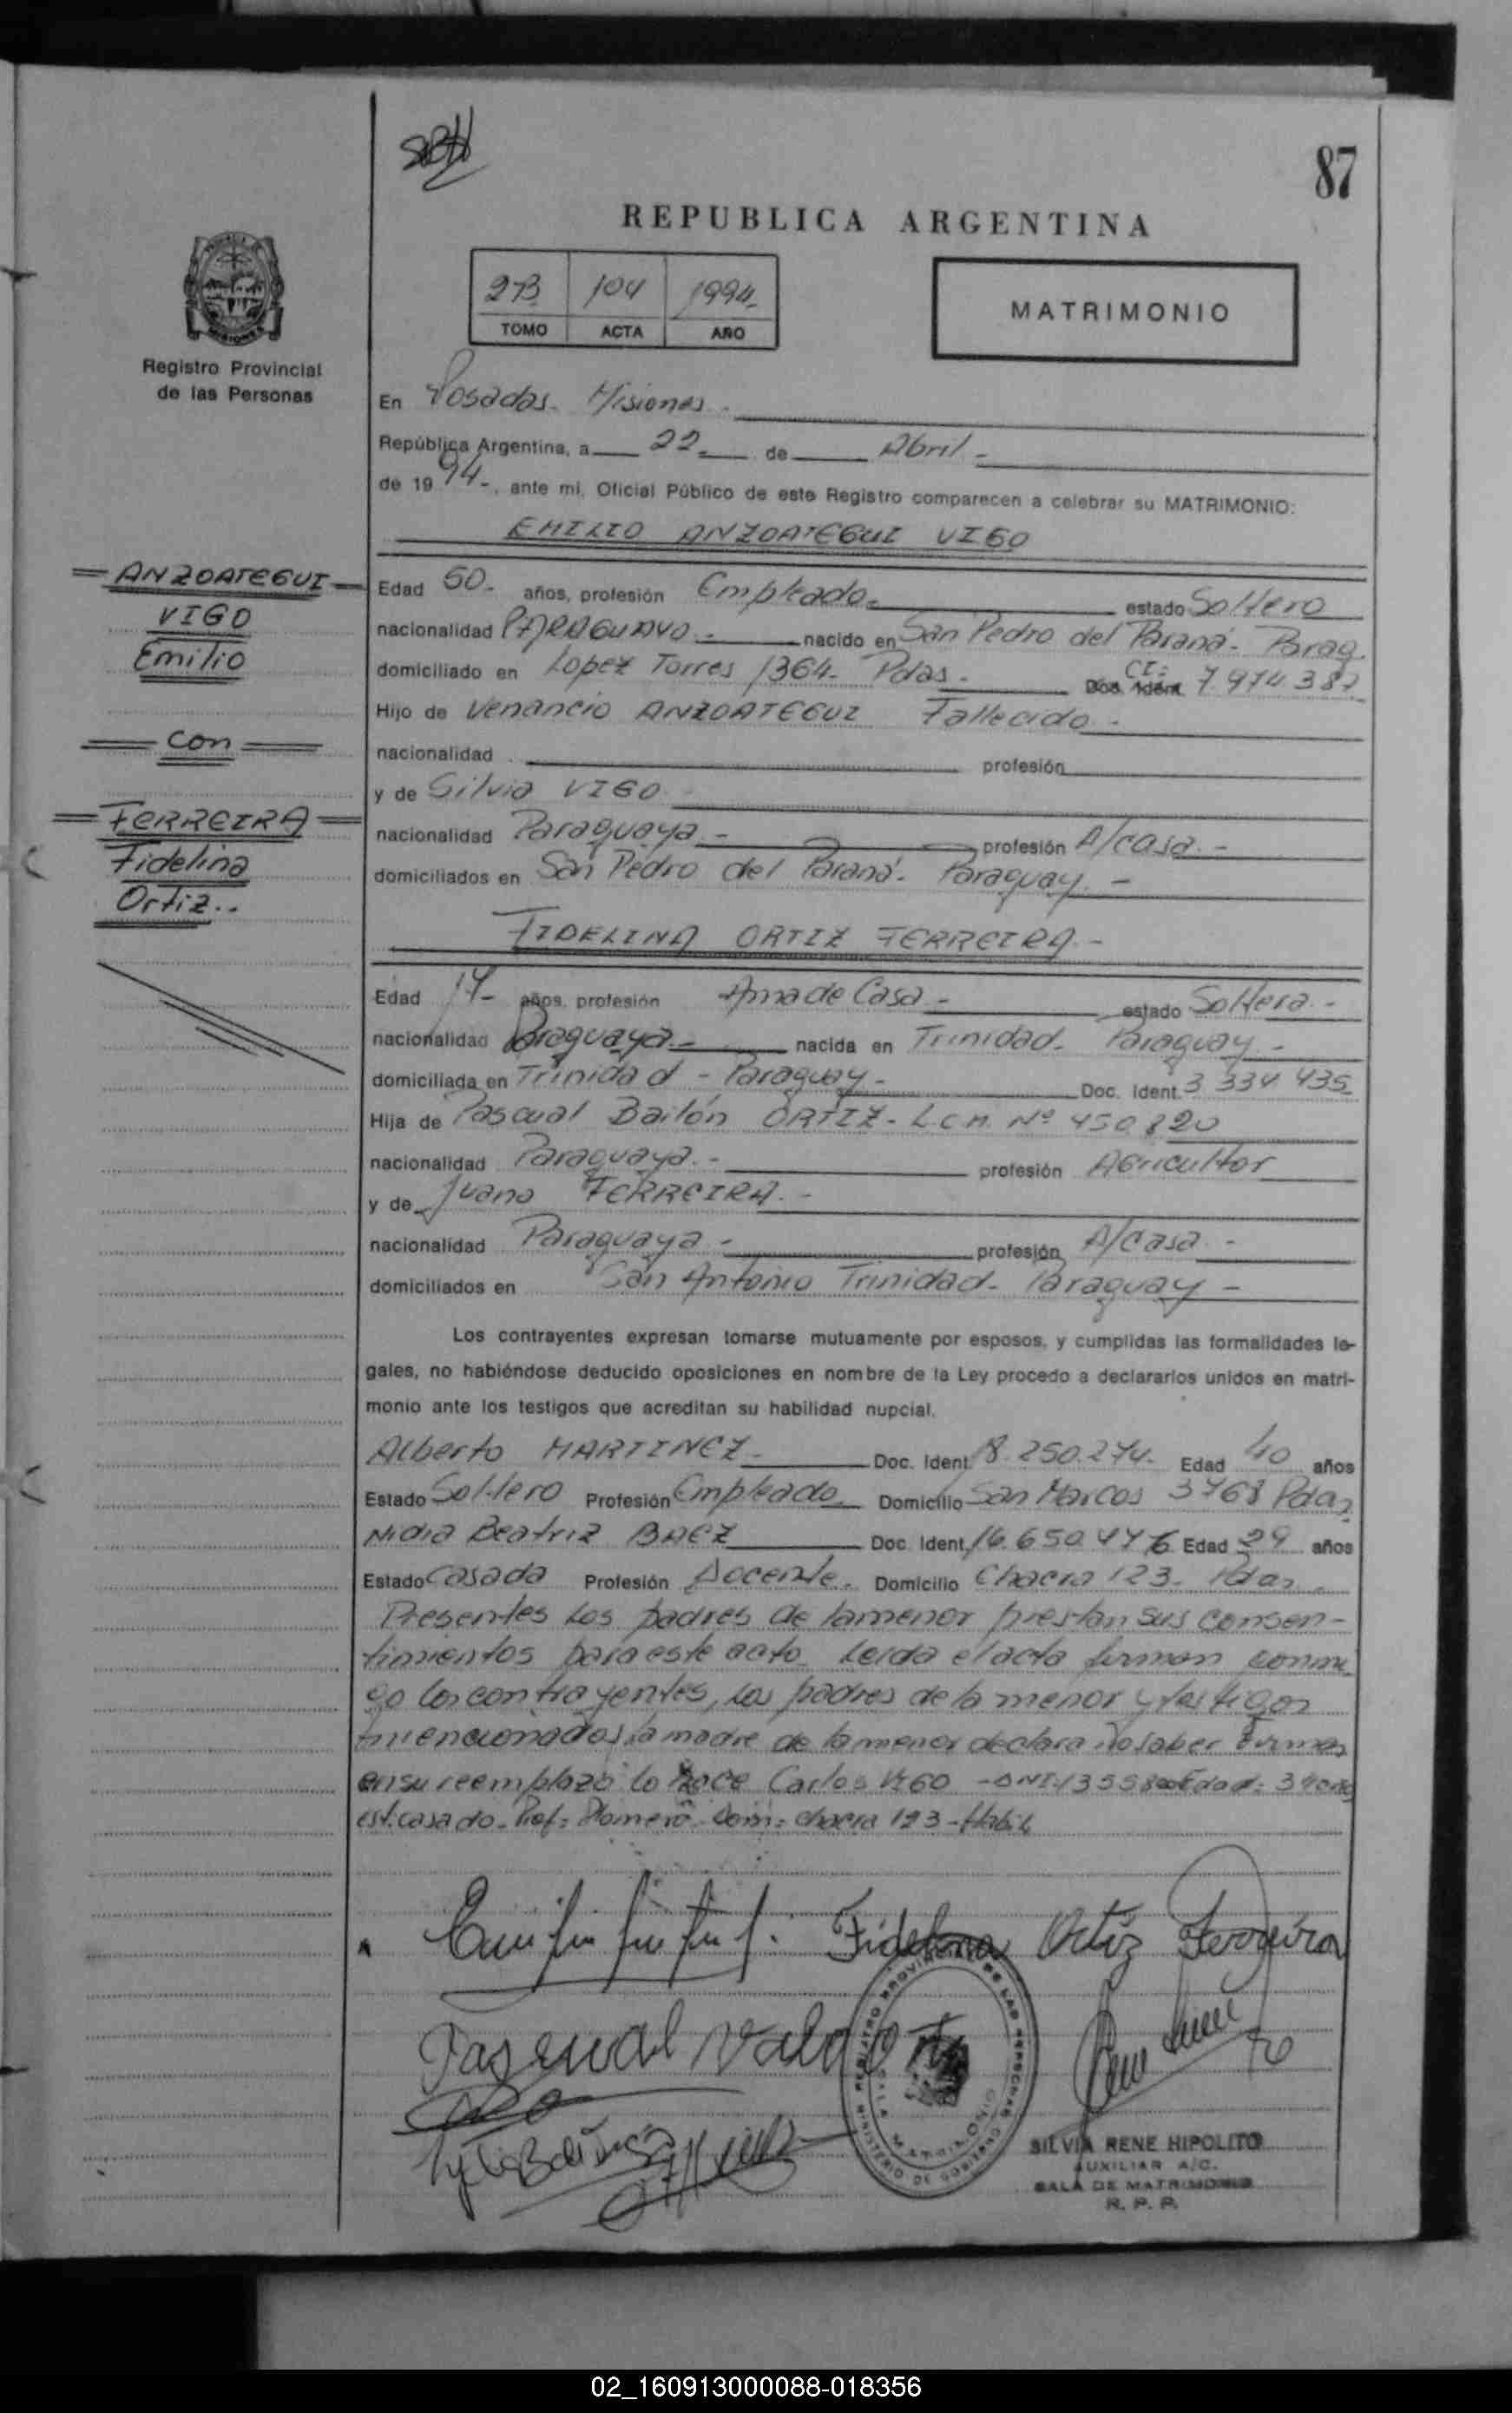 87
REPUBLICA ARGENTINA
2B 104 1994.
TOMO ACTA AÑO
MATRIMONIO
Registro Provincial
de las Personas
En Posadas. Misiones.
República Argentina, a 22 de Abril -
de 19 94-, ante mi, Oficial Público de este Registro comparecen a celebrar su MATRIMONIO:
EMILIO ANZOATEGUI VIGO
ANZOATEGUI
VIGO
Emilio
con
FERREIRA
Fidelina
Ortiz..
Edad 50- años, profesión Empleado- estado Soltero
nacionalidad PARAGUAYO - nacido en San Pedro del Paraná- Parag.
domiciliado en Lopez Torres 1364- Pdas - CI: Doc. Ident. 7.974.387
Hijo de Venancio ANZOATEGUI Fallecido -
nacionalidad profesión
y de Silvia VIGO
nacionalidad Paraguaya - profesión A/casa. -
domiciliados en San Pedro del Paraná- Paraguay. -
FIDELINA ORTIZ FERREIRA. -
Edad 17- años, profesión Ama de Casa - estado Soltera. -
nacionalidad Paraguaya - nacida en Trinidad- Paraguay -
domiciliada en Trinidad - Paraguay - Doc. Ident. 3 334 435
Hija de Pascual Bailón ORTIZ - L.C.M. Nº 450820
nacionalidad Paraguaya. - profesión Agricultor
y de Juana FERREIRA. -
nacionalidad Paraguaya - profesión A/casa -
domiciliados en San Antonio Trinidad- Paraguay -
Los contrayentes expresan tomarse mutuamente por esposos, y cumplidas las formalidades le-
gales, no habiéndose deducido oposiciones en nombre de la Ley procedo a declararlos unidos en matri-
monio ante los testigos que acreditan su habilidad nupcial.
Alberto MARTINEZ- Doc. Ident. 8.250.274. Edad 40 años
Estado Soltero Profesión Empleado Domicilio San Marcos 3768 Pdas
Nidia Beatriz BAEZ Doc. Ident. 16.650.476 Edad 29 años
Estado Casada Profesión Docente. Domicilio Chacra 123- Pdas.
Presentes los padres de la menor prestan sus consen-
timientos para este acto. Leida el acta firman conmi
go los contrayentes, los padres de la menor y testigos
mencionados la madre de la menor declara No saber Firmar
en su reemplazo lo hace Carlos VIGO - DNI: Edad:
est. casado. Prof: Plomero. Dom: chacra 123- Habil
Fidelina Ortiz Ferreira
Pascual
REGISTRO PROVINCIAL DE LAS PERSONAS
MINISTERIO DE GOBIERNO
SILVIA RENE HIPOLITO
AUXILIAR A/C.
SALA DE MATRIMONIO
R. P. P.
02_160913000088-018356